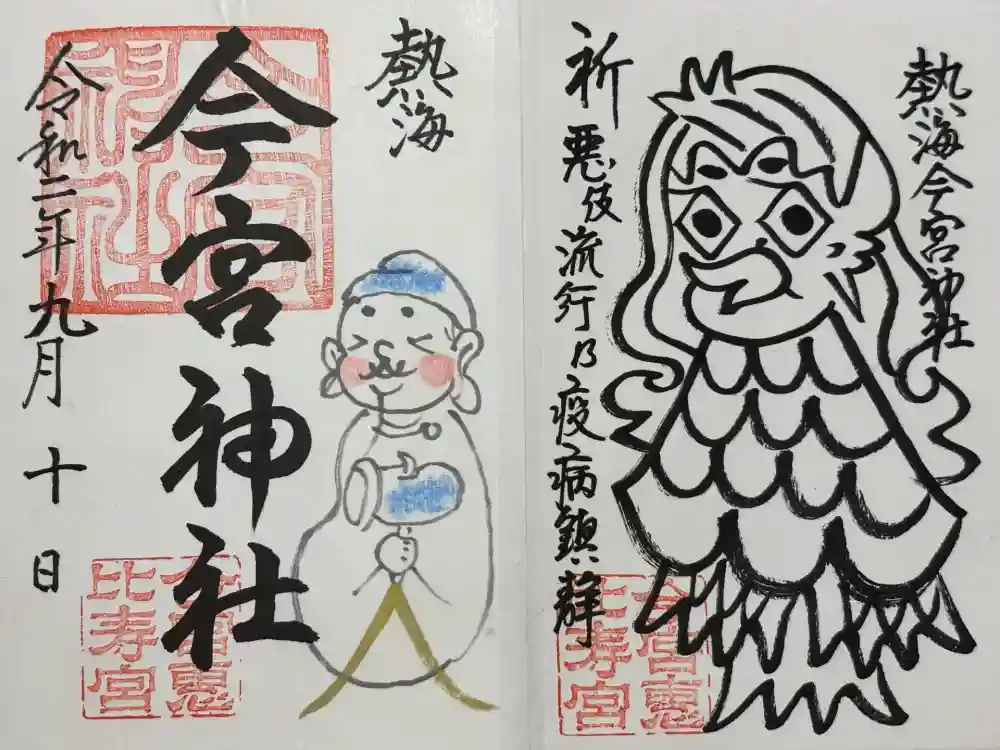 熱海今宮神社
祈 悪伎流行乃疫病鎮静
今宮惠
比寿宮
熱海
今宮神社
令和二年九月十日
今宮惠
比寿宮